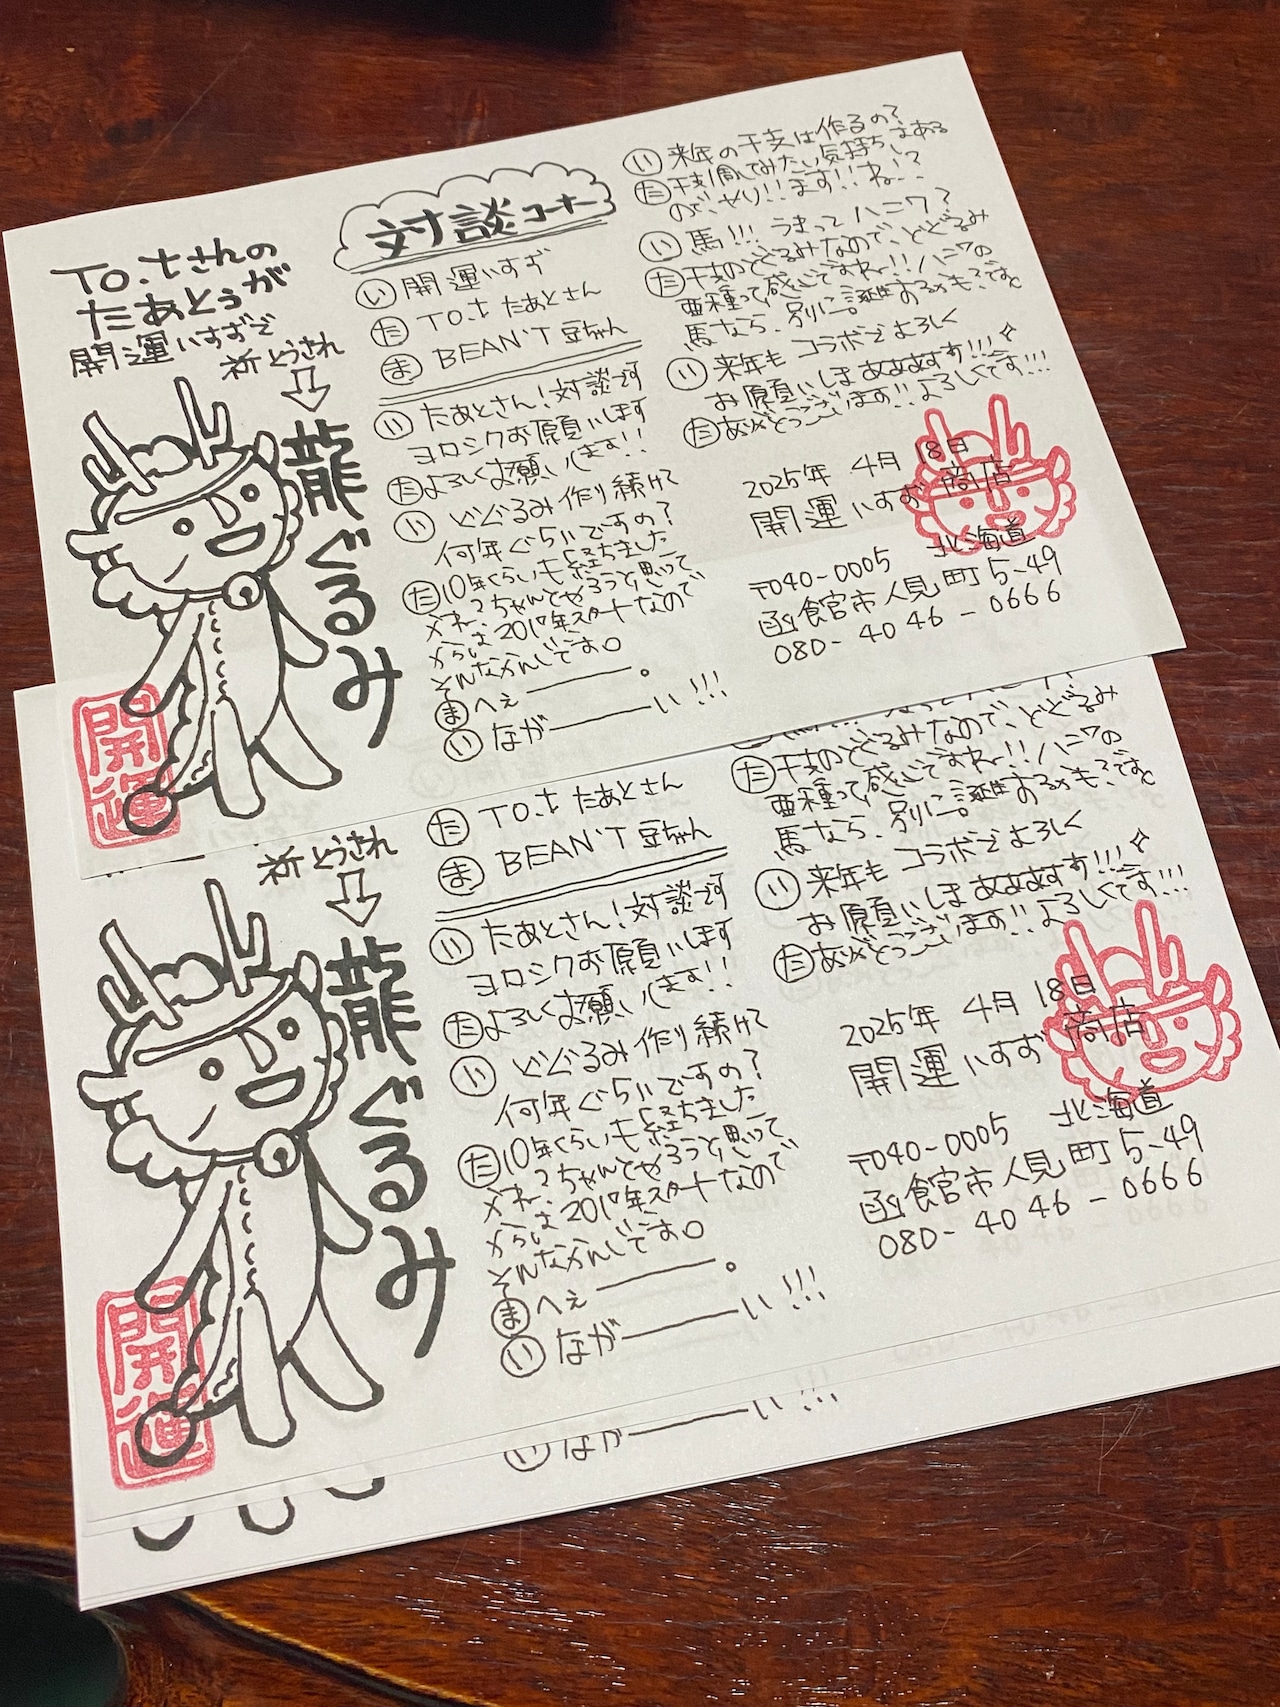 TO.tさんの
たあとぅが
開運いすずで
祈とうされ
龍ぐるみ
開運
対談コーナー
い 開運いすず
た TO.t たあとさん
ま BEAN'T 豆ちゃん
い たあとさん!対談です
ヨロシクお願いします
た よろしくお願いします!!
い どぐるみ作り続けて
何年ぐらいですの?
た 10年くらいも経ちました
かね?ちゃんとやろうと思って
からは2017年スタートなので
そんなかんじです。
ま へぇ―――。
い なが―――い!!!
い 来年の干支は作るの?
た 干支1周してみたい気持ちはある
ので、やり!!ます!!ね!?
い 馬!!! うまってハニワ?
た 干支のどぐるみなので、どどぐるみ
亜種って感じですね〜!!ハニワの
馬なら、別に誕生するかも?ですね
い 来年も コラボでよろしく
お願いしまああああす!!!
た ありがとうございます!!よろしくです!!!
2025年 4月 18日
開運いすず 商店
〒040-0005 北海道
函館市人見町5-49
080-4046-0666
た TO.t たあとさん
ま BEAN'T 豆ちゃん
祈とうされ
龍ぐるみ
開運
い たあとさん!対談です
ヨロシクお願いします
た よろしくお願いします!!
い どぐるみ作り続けて
何年ぐらいですの?
た 10年くらいも経ちました
かね?ちゃんとやろうと思って
からは2017年スタートなので
そんなかんじです。
ま へぇ―――。
い なが―――い!!!
た 干支のどぐるみなので、どどぐるみ
亜種って感じですね〜!!ハニワの
馬なら、別に誕生するかも?ですね
い 来年も コラボでよろしく
お願いしまああああす!!!
た ありがとうございます!!よろしくです!!!
2025年 4月 18日
開運いすず 商店
〒040-0005 北海道
函館市人見町5-49
080-4046-0666
い なが―――い!!!